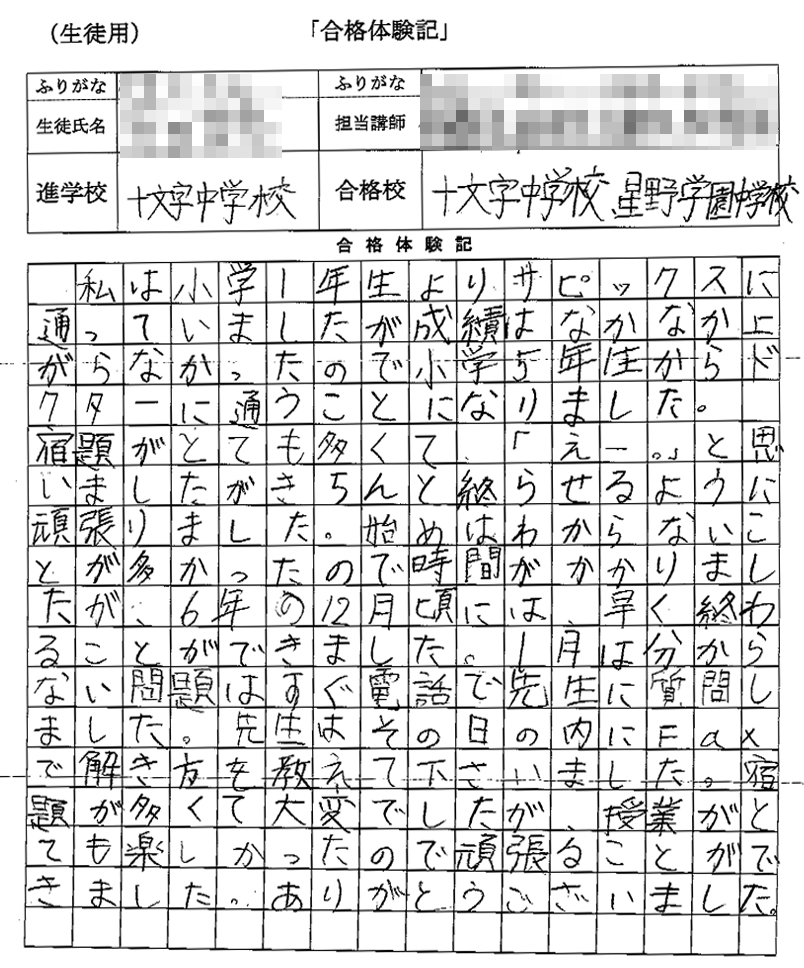 (生徒用) 「合格体験記」
ふりがな ふりがな
生徒氏名 担当講師
進学校 十文字中学校 合格校 十文字中学校 星野学園中学校
合格体験記
私は小学1年生よりサピックスに
通っていましたが成績はなかなか上
がらなかったので小学5年生からド
クターに通うことになりました。
宿題がとても多くて、「えー。」と思
いましたがきちんと終らせるように
頑張りました。始めはわからないこ
とが多かったので時間がかかりまし
たが、6年の12月頃には、早く終わ
ることができました。1月は分から
ない問題はすぐ電話で先生に質問し
ました。先生はその日の内にFax
で解き方を教えて下さいました。宿
題が多くて大変でしたが、授業がと
ても楽しかったので頑張ることがで
きました。ありがとうございました。